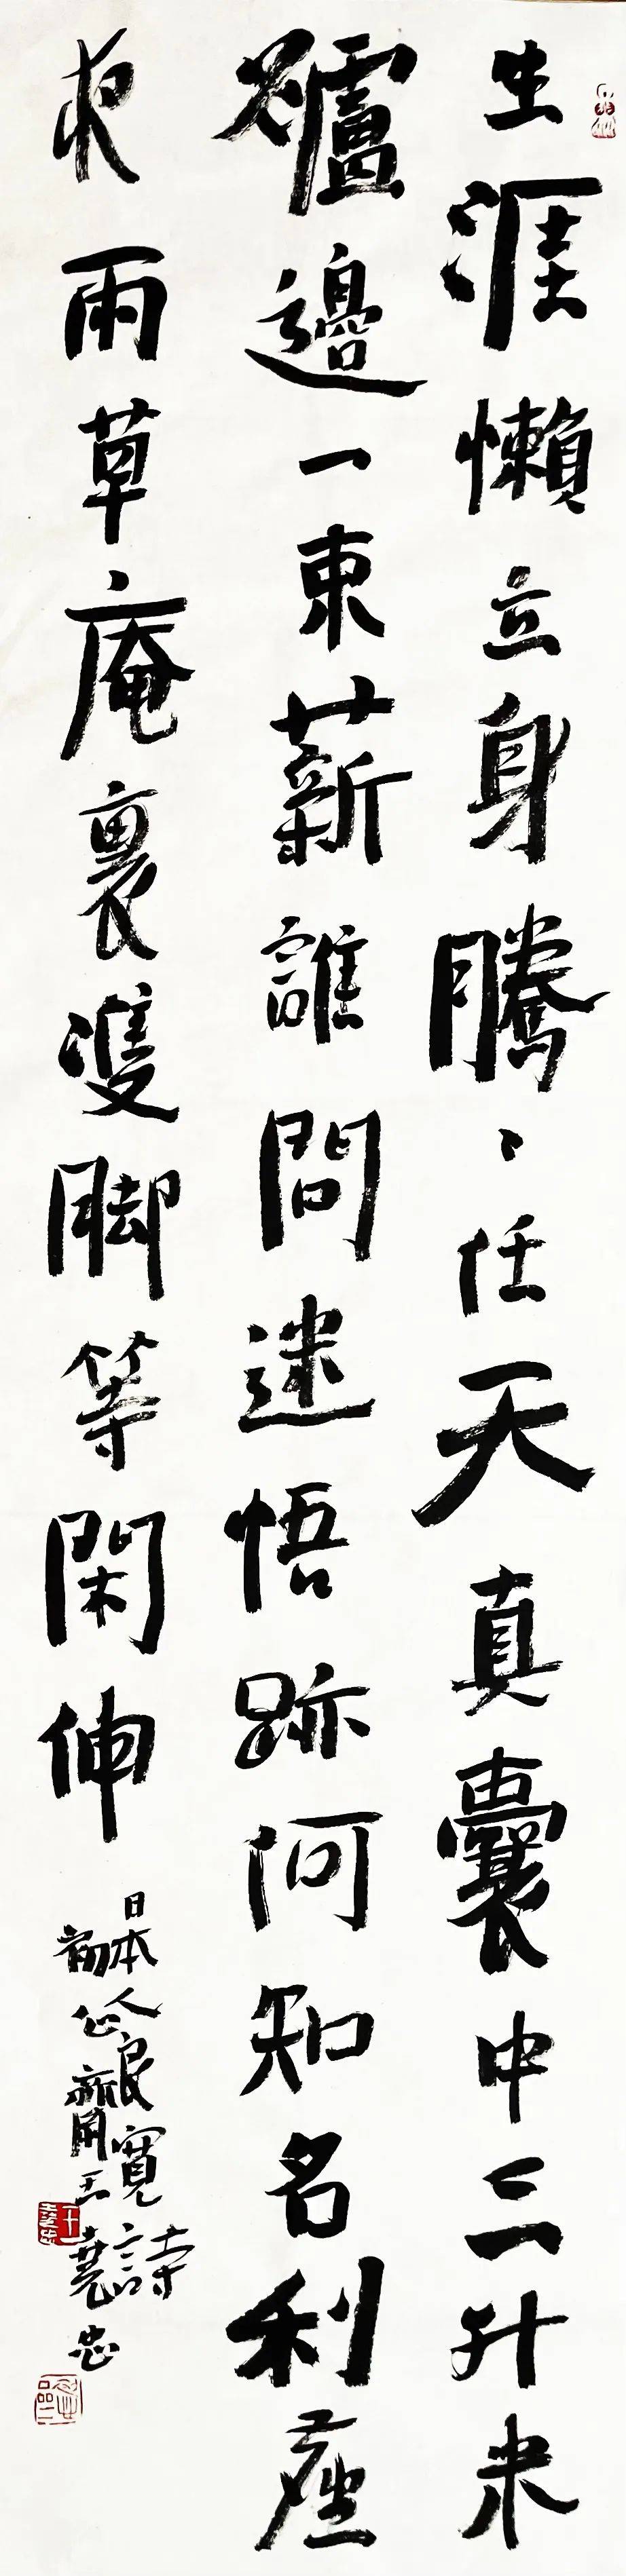 生涯懶立身騰、任天真囊中三升米
爐邊一束薪誰問迷悟跡何知名利塵
夜雨草庵裏雙脚等閑伸
日本人良寬詩
王堯忠